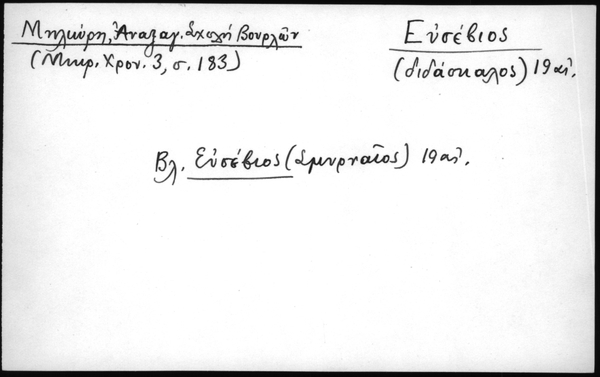 Μηλιώρη, Ἀναξαγ. Σχολή Βουρλῶν
(Μικρ. Χρον. 3, σ. 183)
Εὐσέβιος
(διδάσκαλος) 19 αἰ.
Βλ. Εὐσέβιος (Σμυρναῖος) 19 αἰ.